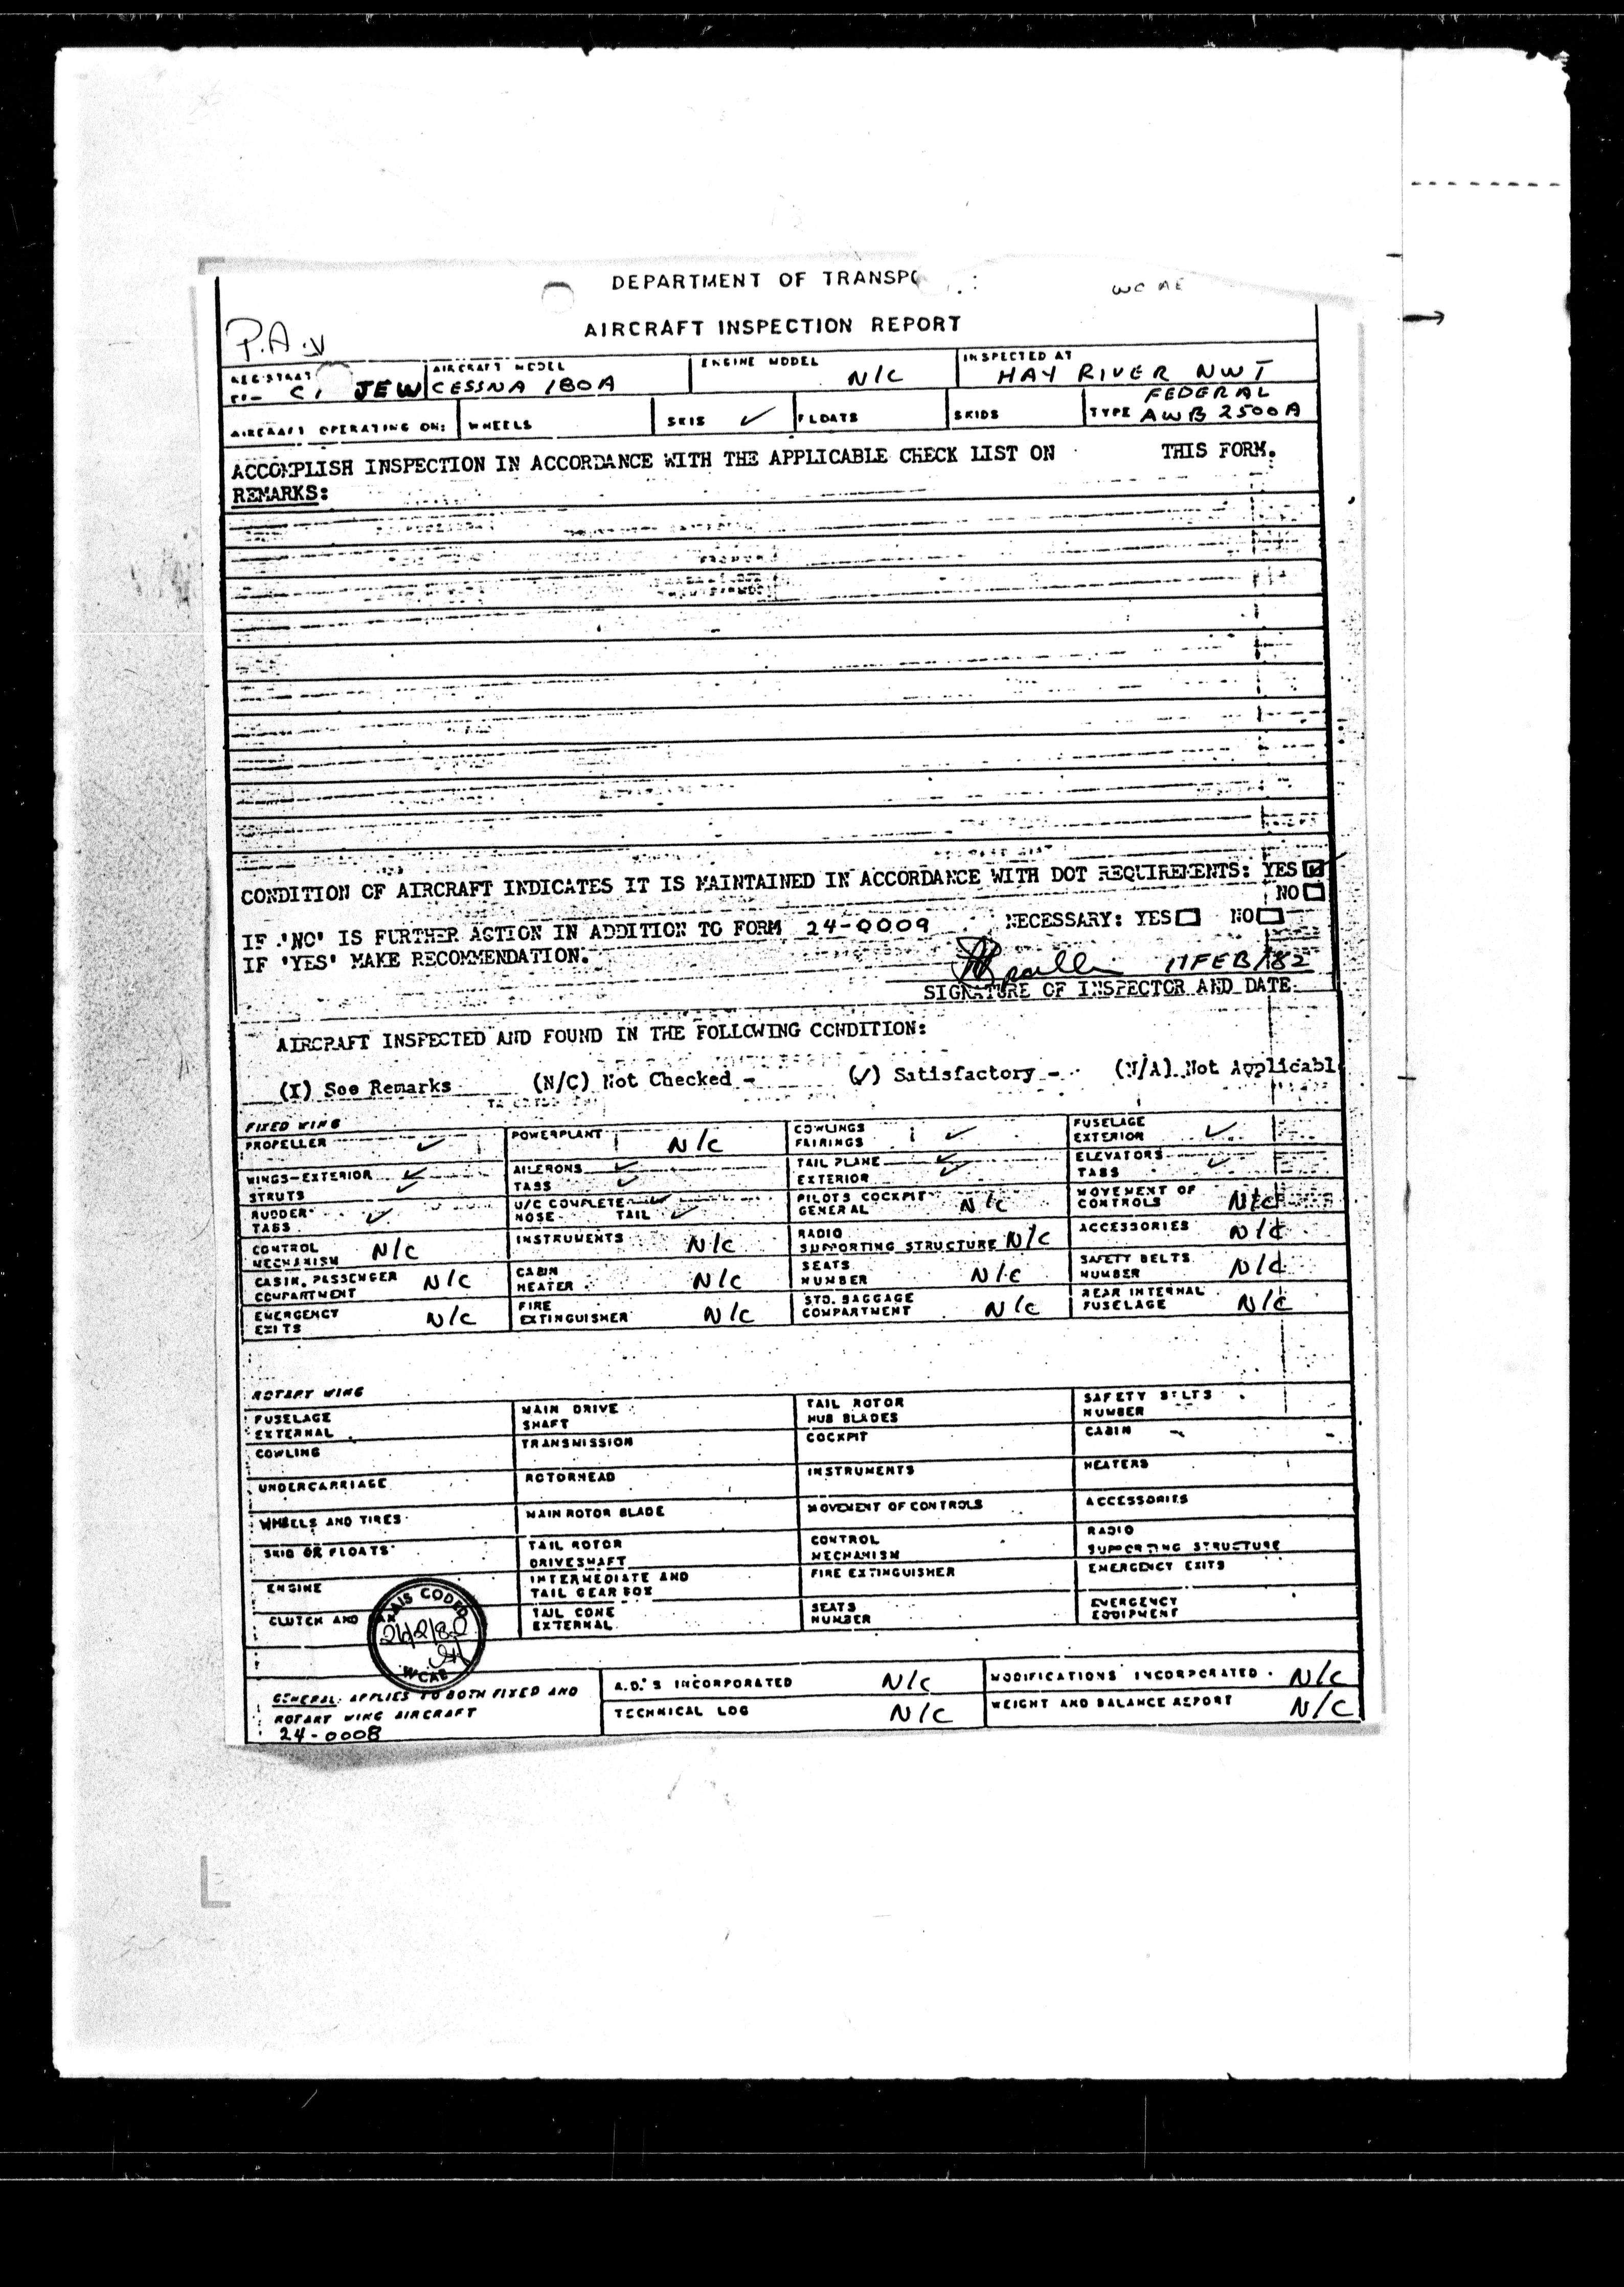 DEPARTMENT OF TRANSPO
WCAE
AIRCRAFT INSPECTION REPORT
P.A.
AIRCRAFT MODEL ENGINE MODEL INSPECTED AT
C JEW CESSNA 180A N/C HAY RIVER NWT
FEDERAL
AIRCRAFT OPERATING ON: WHEELS SKIS ✓ FLOATS SKIDS TYPE AWB 2500A
ACCOMPLISH INSPECTION IN ACCORDANCE WITH THE APPLICABLE CHECK LIST ON THIS FORM.
REMARKS:
CONDITION OF AIRCRAFT INDICATES IT IS MAINTAINED IN ACCORDANCE WITH DOT REQUIREMENTS: YES ☑
NO ☐
IF 'NO' IS FURTHER ACTION IN ADDITION TO FORM 24-0009 NECESSARY: YES ☐ NO ☐
IF 'YES' MAKE RECOMMENDATION.
FEB/82
SIGNATURE OF INSPECTOR AND DATE
AIRCRAFT INSPECTED AND FOUND IN THE FOLLOWING CONDITION:
(I) See Remarks (N/C) Not Checked - (✓) Satisfactory - (N/A) Not Applicabl
FIXED WING
PROPELLER ✓ POWERPLANT N/C COWLINGS FAIRINGS ✓ FUSELAGE EXTERIOR ✓
WINGS-EXTERIOR ✓ STRUTS ✓ AILERONS ✓ TABS ✓ TAIL PLANE ✓ EXTERIOR ✓ ELEVATORS TABS ✓
RUDDER TABS ✓ U/C COMPLETE ✓ NOSE TAIL ✓ PILOTS COCKPIT GENERAL N/C MOVEMENT OF CONTROLS N/C
CONTROL MECHANISM N/C INSTRUMENTS N/C RADIO SUPPORTING STRUCTURE N/C ACCESSORIES N/C
CABIN, PASSENGER COMPARTMENT N/C CABIN HEATER N/C SEATS NUMBER N/C SAFETY BELTS NUMBER N/C
EMERGENCY EXITS N/C FIRE EXTINGUISHER N/C STD. BAGGAGE COMPARTMENT N/C REAR INTERNAL FUSELAGE N/C
ROTARY WING
FUSELAGE EXTERNAL MAIN DRIVE SHAFT TAIL ROTOR HUB BLADES SAFETY BELTS NUMBER
COWLING TRANSMISSION COCKPIT CABIN
UNDERCARRIAGE ROTORHEAD INSTRUMENTS HEATERS
WHEELS AND TIRES MAIN ROTOR BLADE MOVEMENT OF CONTROLS ACCESSORIES
SKID OR FLOATS TAIL ROTOR DRIVESHAFT CONTROL MECHANISM RADIO SUPPORTING STRUCTURE
ENGINE INTERMEDIATE AND TAIL GEAR BOX FIRE EXTINGUISHER EMERGENCY EXITS
CLUTCH AND TAIL CONE EXTERNAL SEATS NUMBER EMERGENCY EQUIPMENT
CODED
WCAE
GENERAL: APPLIES TO BOTH FIXED AND ROTARY WING AIRCRAFT
24-0008
A.D.'S INCORPORATED N/C MODIFICATIONS INCORPORATED N/C
TECHNICAL LOG N/C WEIGHT AND BALANCE REPORT N/C